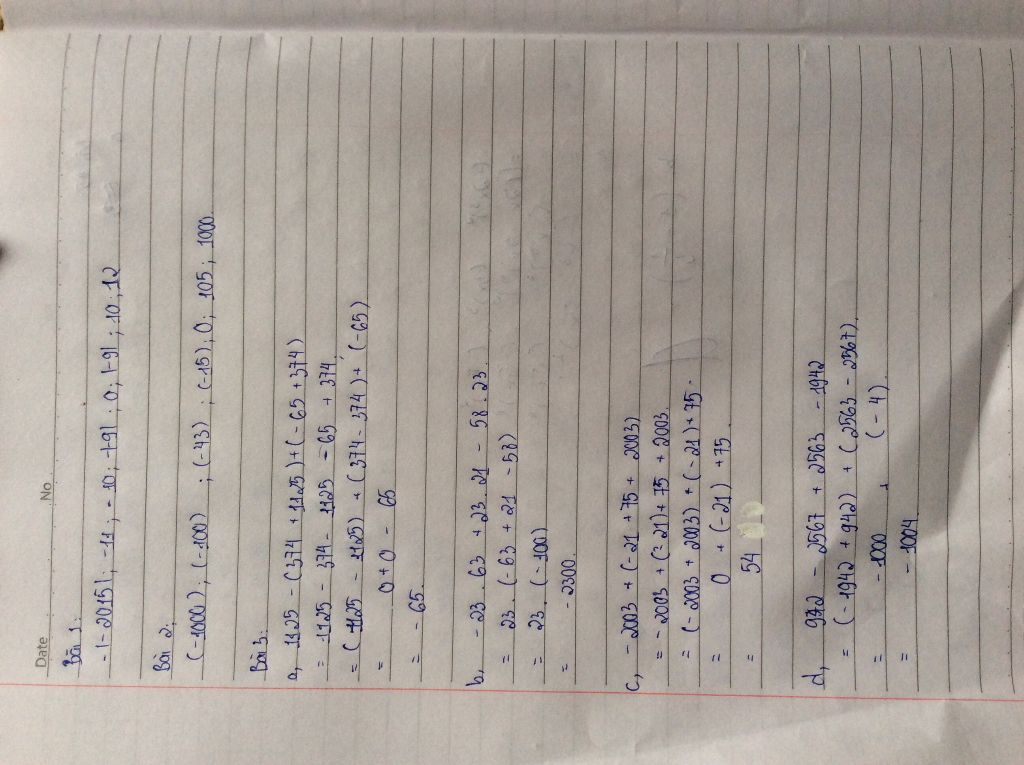 Date No.
Bài 1:
-|-2015|; -11; -10; -|-9|; 0; |-9|; 10; 12
Bài 2:
(-1000); (-100); (-43); (-15); 0; 105; 1000
Bài 3:
a, 1125 - (374 + 1125) + (-65 + 374)
= 1125 - 374 - 1125 - 65 + 374
= (1125 - 1125) + (374 - 374) + (-65)
= 0 + 0 - 65
= -65.
b, -23 . 63 + 23 . 21 - 58 . 23
= 23 . (-63 + 21 - 58)
= 23 . (-100)
= -2300.
c, -2003 + (-21 + 75 + 2003)
= -2003 + (-21) + 75 + 2003.
= (-2003 + 2003) + (-21) + 75.
= 0 + (-21) + 75.
= 54
d, 942 - 2567 + 2563 - 1942
= (-1942 + 942) + (2563 - 2567).
= -1000 + (-4).
= -1004.